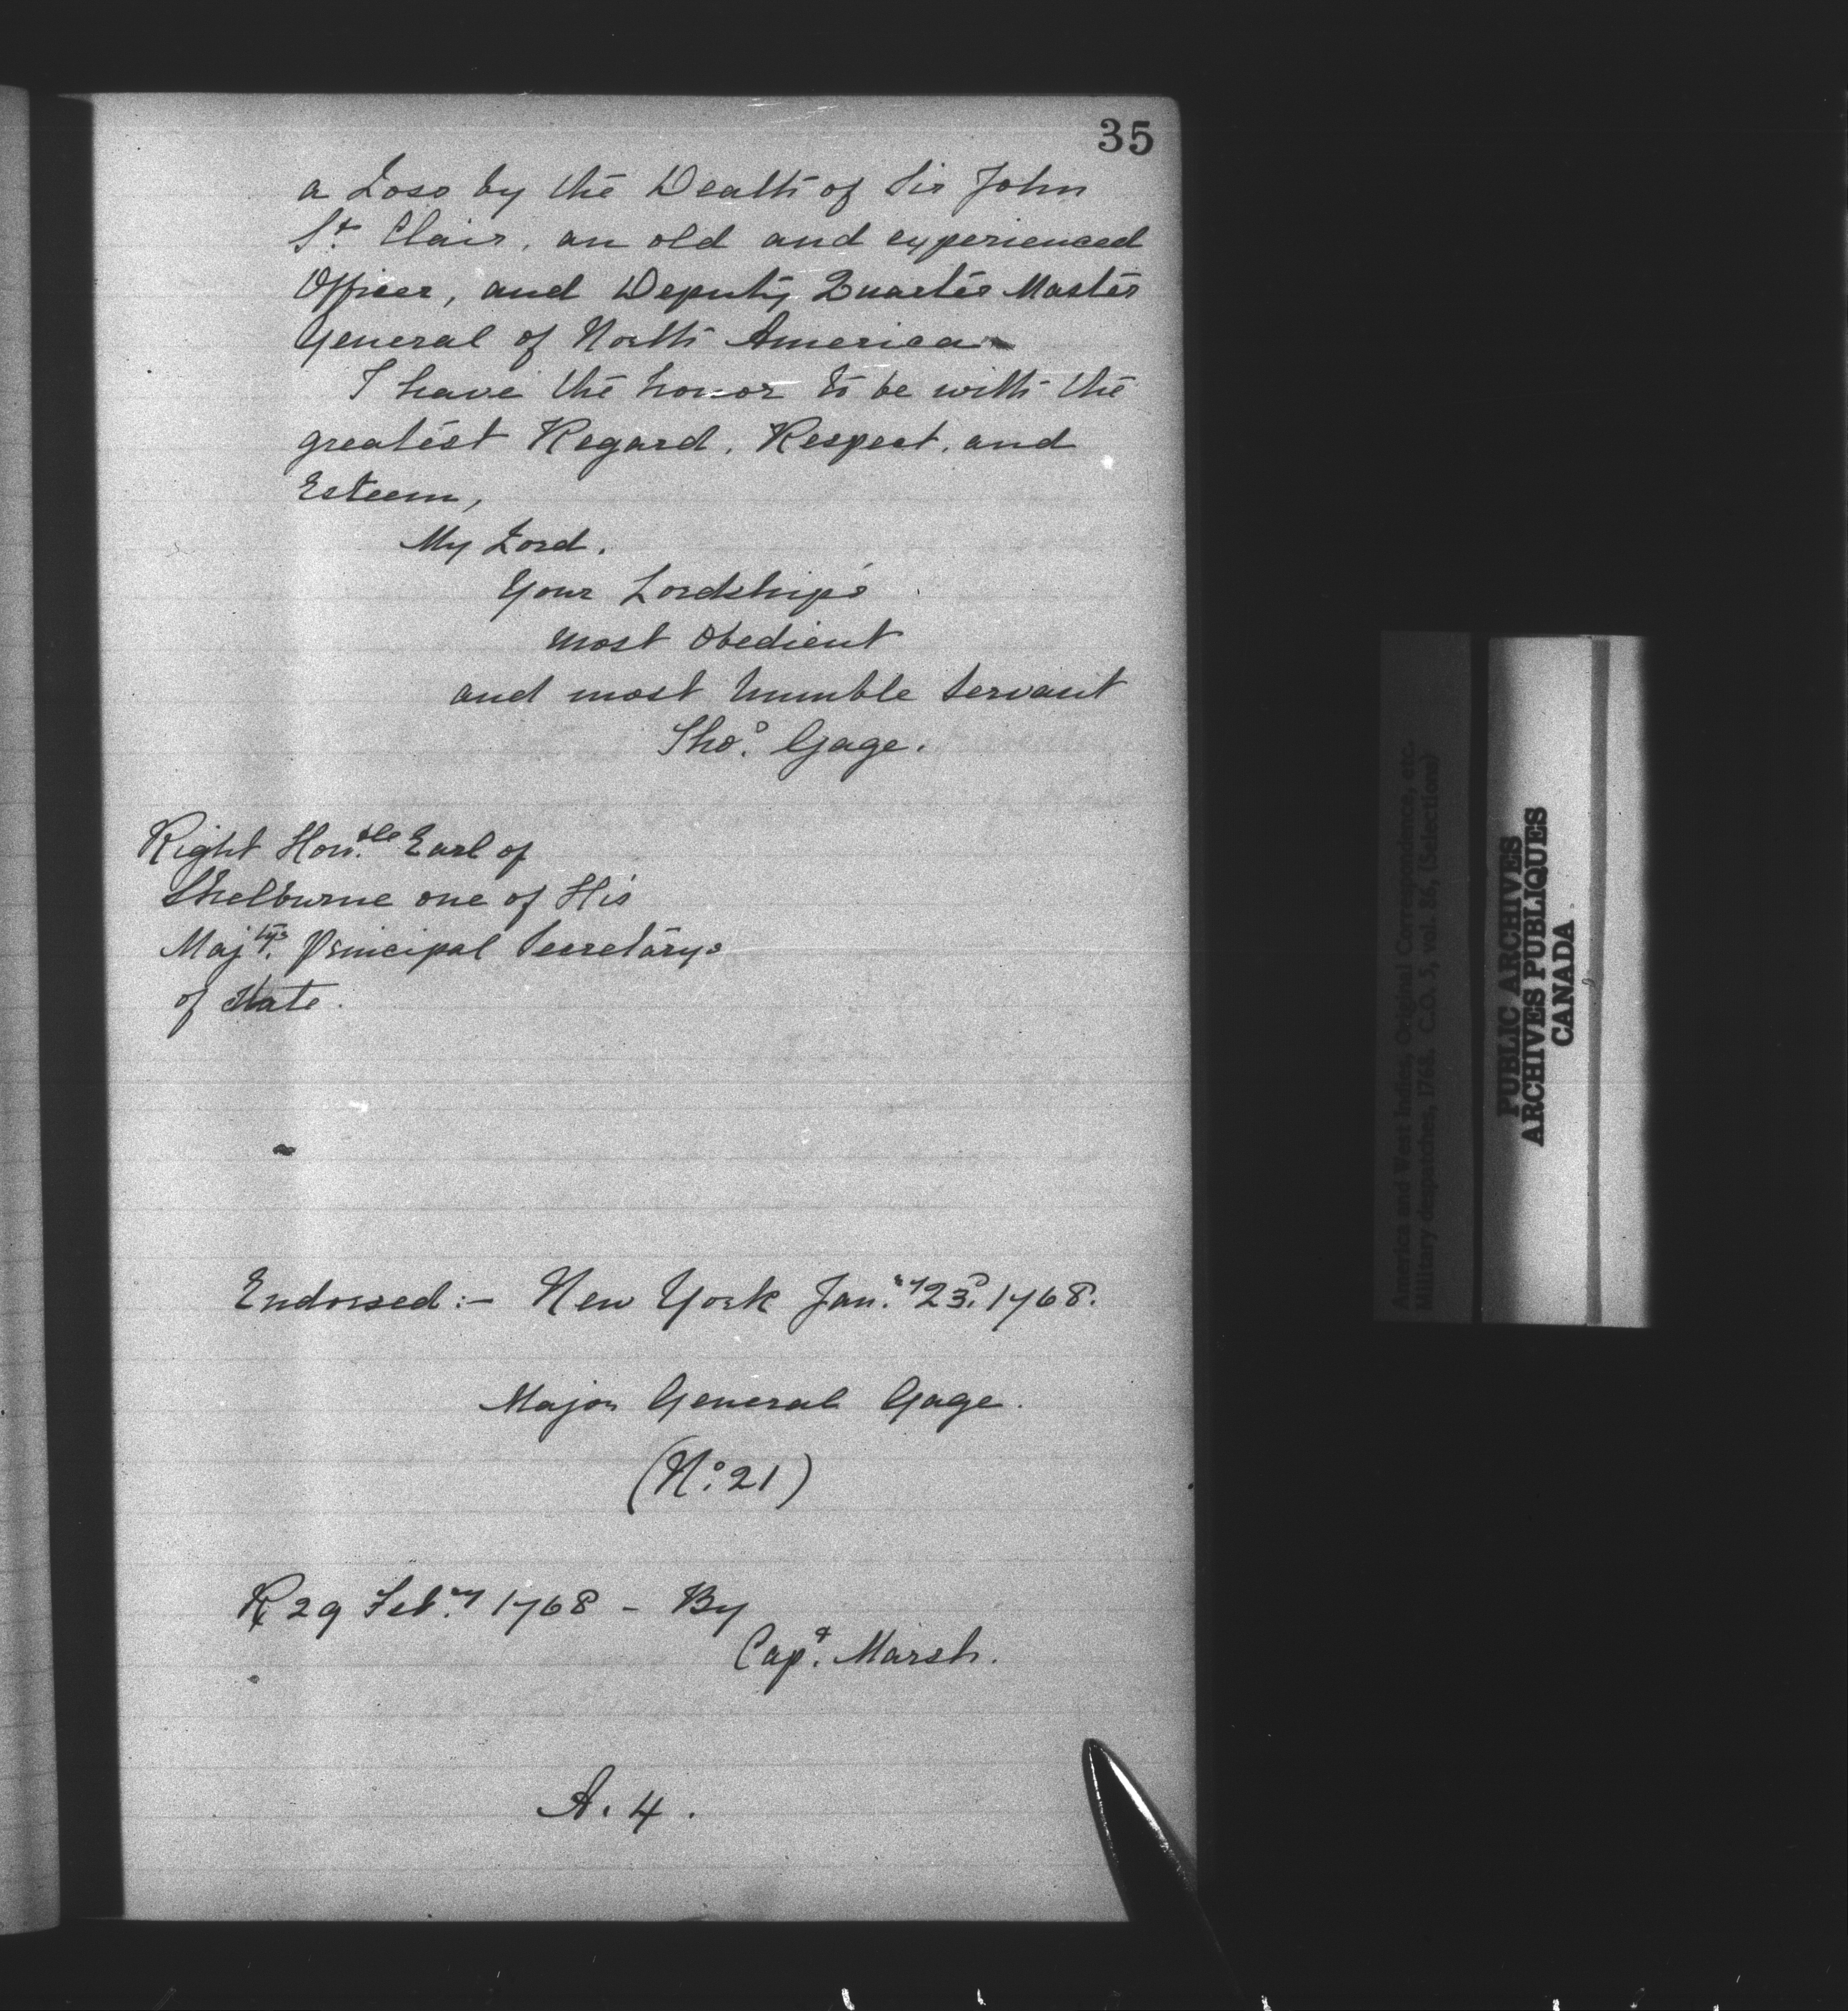 35
a Loss by the Death of Sir John
St. Clair, an old and experienced
Officer, and Deputy Quarter Master
General of North America
I have the honor to be with the
greatest Regard, Respect, and
Esteem,
My Lord.
Your Lordship's
most Obedient
and most humble Servant
Tho.s Gage.
Right Hon.ble Earl of
Shelburne one of His
Maj.tys Principal Secretarys
of State.
Endorsed:- New York Jan.ry 23.d 1768.
Major General Gage.
(No. 21)
R 29 Feb.ry 1768 - By
Cap.t Marsh.
A. 4.
America and West Indies, Original Correspondence, etc.
Military despatches, 1768. C.O. 5, vol. 86, (Selections)
PUBLIC ARCHIVES
ARCHIVES PUBLIQUES
CANADA